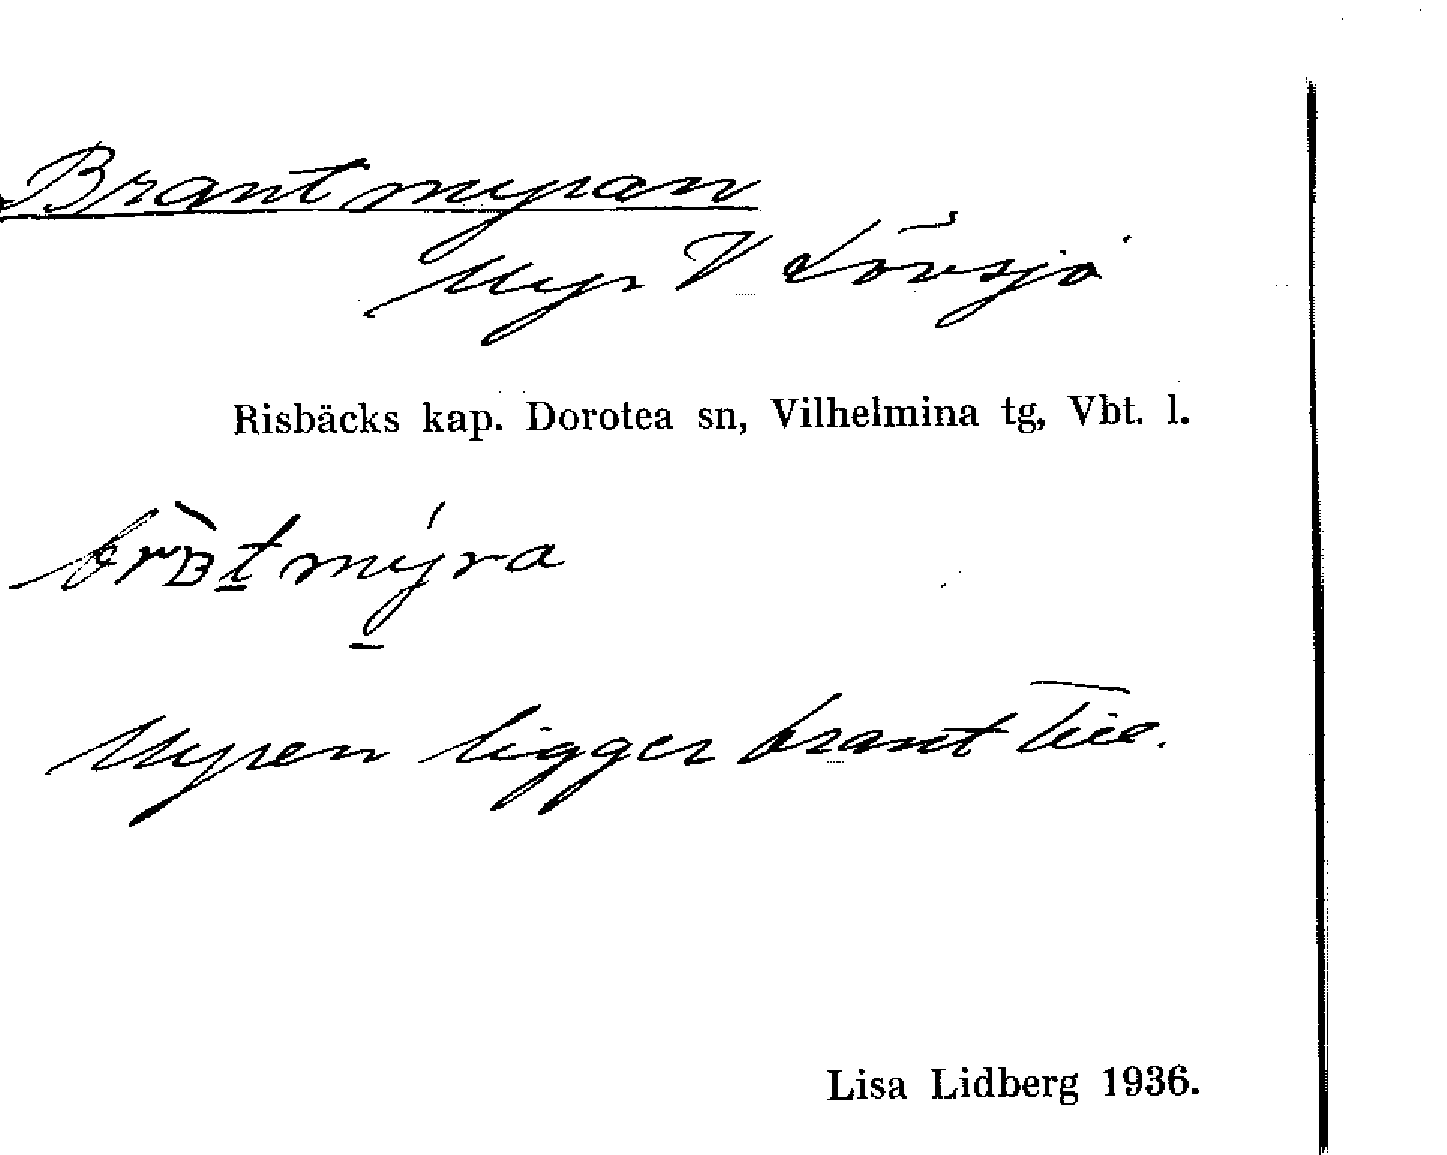 Brantmyran
Myr V Lövsjö
Risbäcks kap. Dorotea sn, Vilhelmina tg, Vbt. l.
Myren ligger brant till.
Lisa Lidberg 1936.